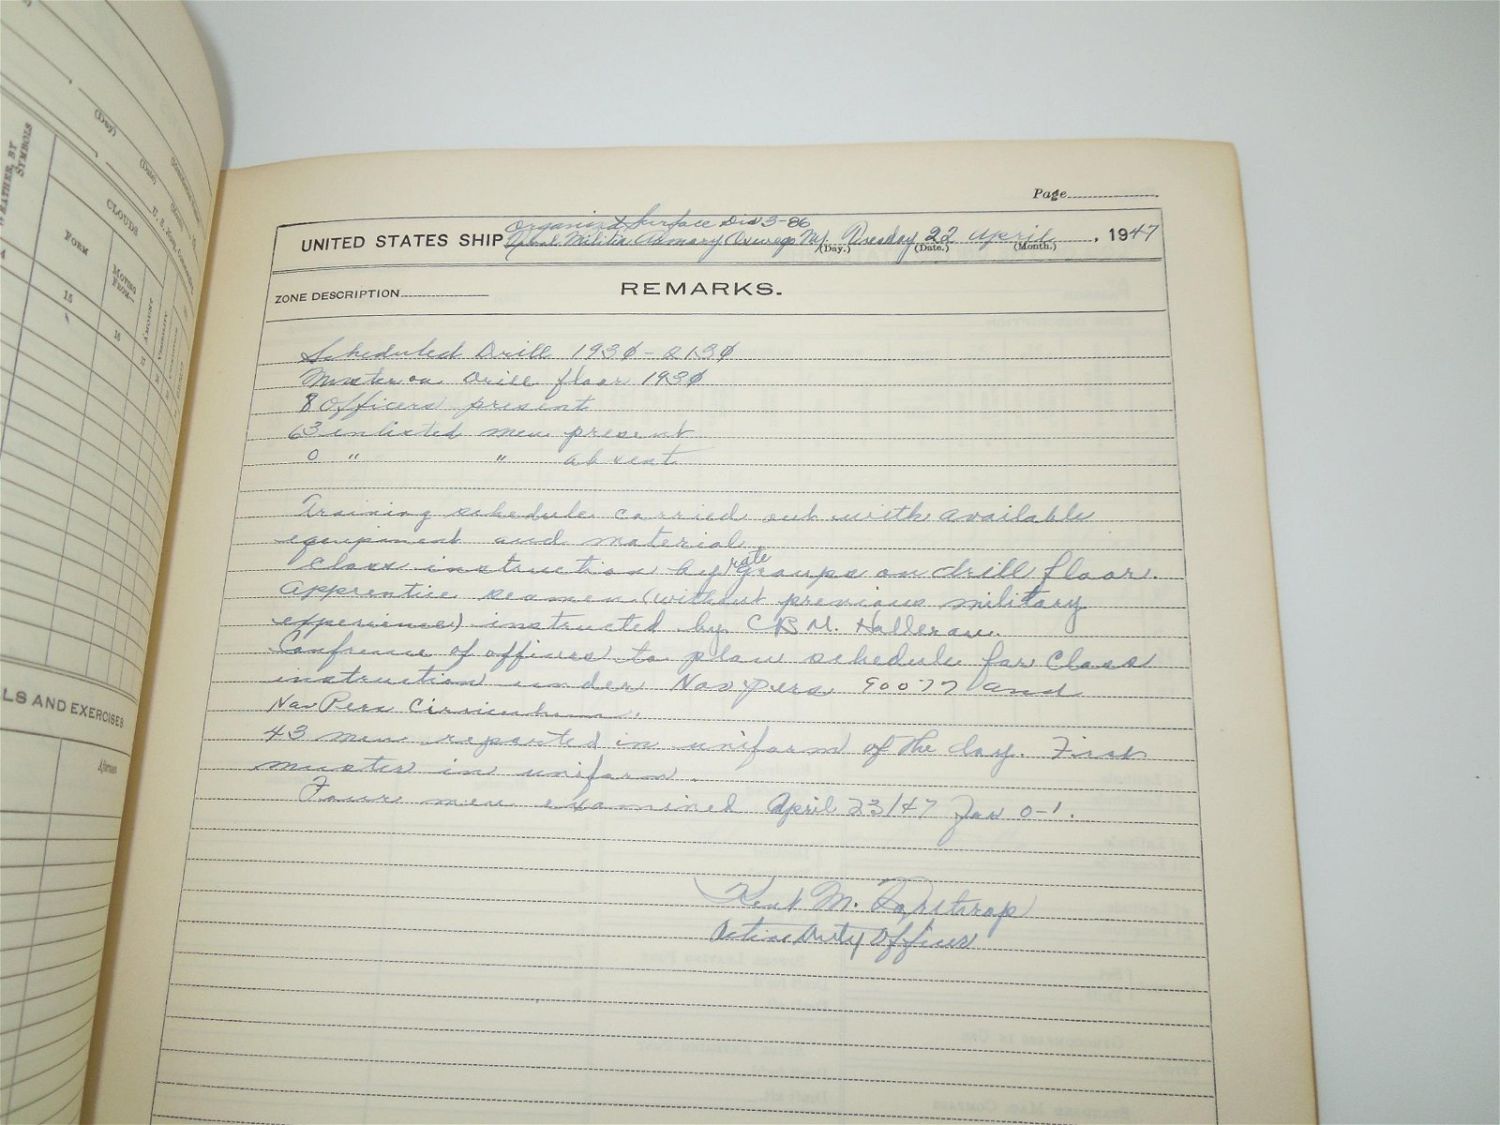 (Day)
(Date)
WEATHER, BY SYMBOLS
CLOUDS
FORM
MOVING FROM—
AMOUNT
15
16
LS AND EXERCISES
Afternoon
Page
Organized Surface Div 3-86
UNITED STATES SHIP Naval Militia Armory Oswego NY. Tuesday 22 April, 1947
(Day.) (Date.) (Month.)
ZONE DESCRIPTION REMARKS.
Scheduled Drill 1930 - 2130
Muster on Drill floor 1930
8 officers present
63 enlisted men present
0 " " absent
Training schedule carried out with available
equipment and material.
Class instruction by rate groups on drill floor.
Apprentice seamen (without previous military
experience) instructed by CBM. Halleran.
Confrence of officers to plan schedule for Class
instruction under NavPers 90077 and
NavPers Cirriculum.
43 men reported in uniform of the day. First
muster in uniform.
Four men examined April 23/47 for 0-1.
Kent M.
Active Duty Officer